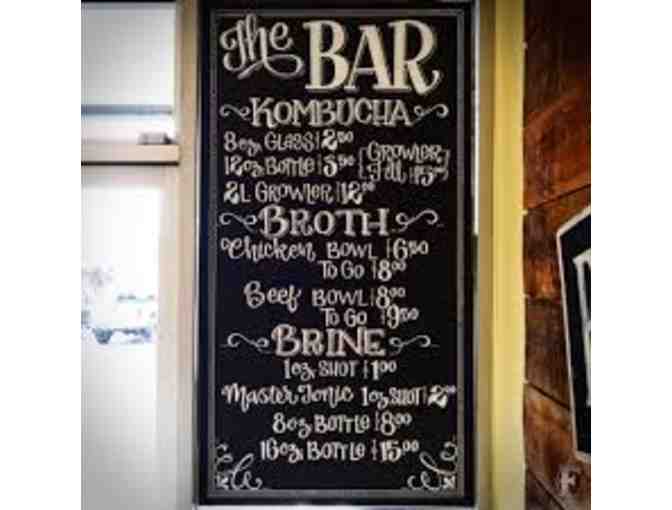 The BAR
KOMBUCHA
8oz. GLASS | 2⁵⁰
12oz. BOTTLE | 3⁵⁰ {GROWLER
Fill | 15⁰⁰}
2L GROWLER | 12⁰⁰
BROTH
Chicken BOWL | 6⁵⁰
TO GO | 8⁰⁰
Beef BOWL | 8⁰⁰
TO GO | 9⁵⁰
BRINE
1oz. SHOT | 1⁰⁰
Master Tonic 1oz SHOT | 2⁰⁰
8oz BOTTLE | 8⁰⁰
16oz. BOTTLE | 15⁰⁰